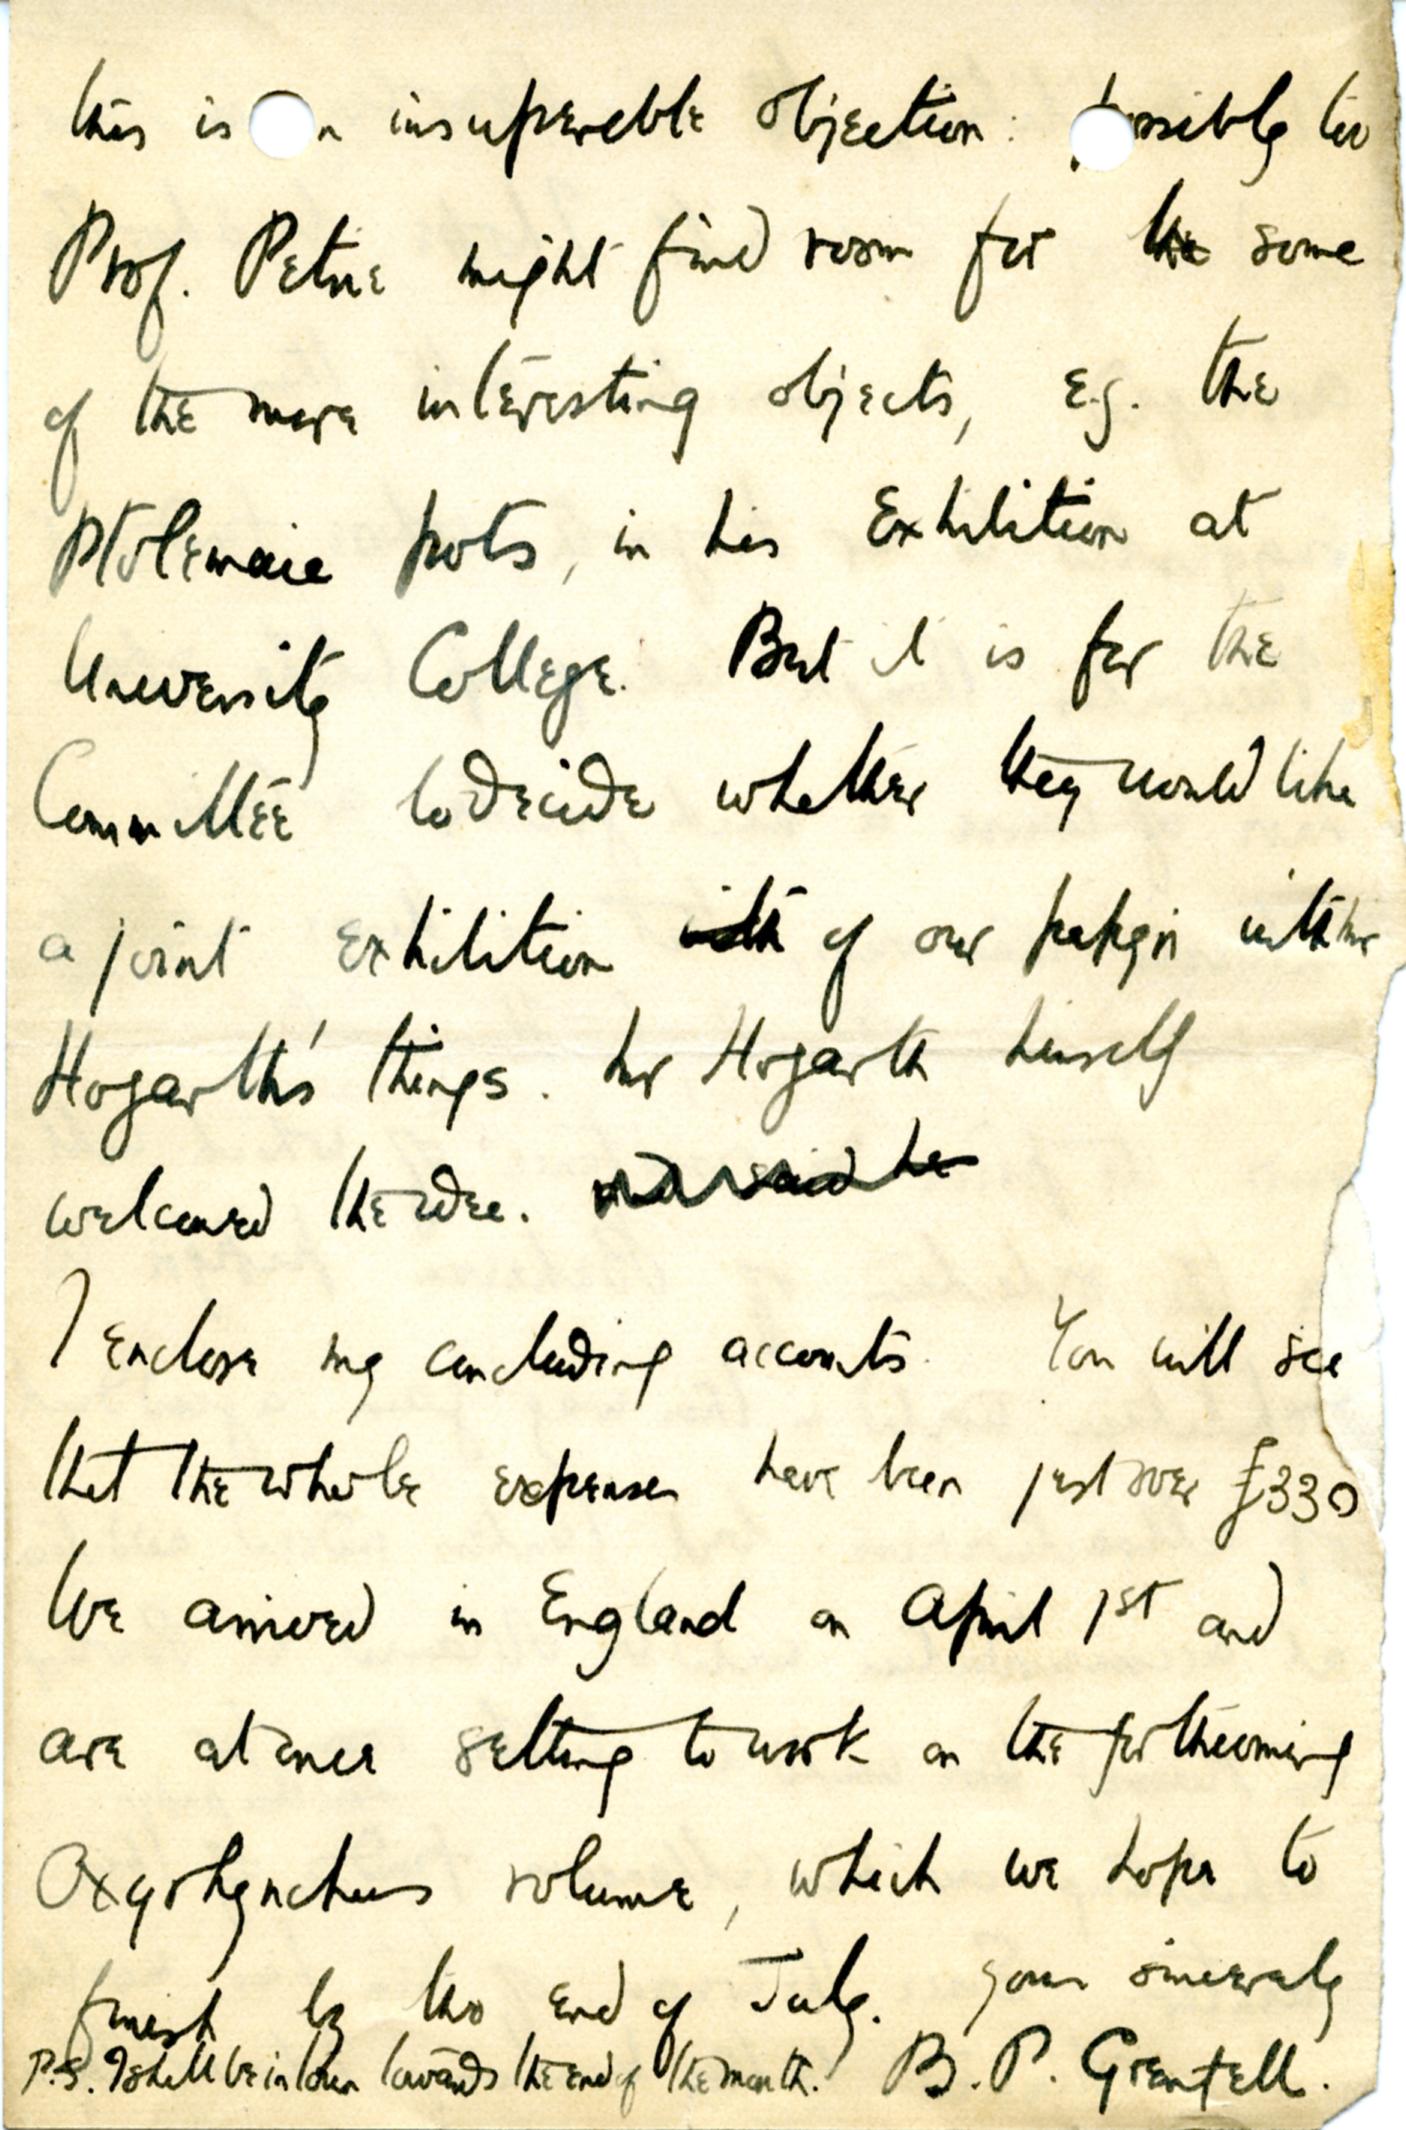 this is n insuperable objection: possibly too
Prof. Petrie might find room for the some
of the more interesting objects, e.g. the
Ptolemaic pots, in his Exhibition at
University College. But it is for the
Committee to decide whether they would like
a joint exhibition with of our papyri with Mr
Hogarth's things. Mr Hogarth himself
welcomed the idea. and said he
I enclose my concluding accounts. You will see
that the whole expenses have been just over £330
We arrived in England on April 1st and
are at once setting to work on the forthcoming
Oxyrhynchus volume, which we hope to
finish by the end of July. yours sincerely
P.S. I shall be in town towards the end of the month. B. P. Grenfell.